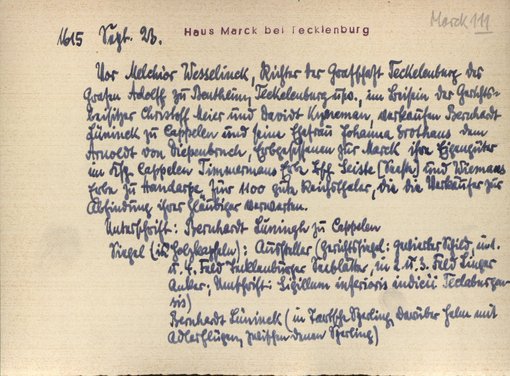 Marck 111
1615 Sept. 23.
Haus Marck bei Tecklenburg
Vor Melchior Wesselinck, Richter der Graffschaft Teckelenburg des
Grafen Adolff zu Bentheim, Teckelenburg usw., im Beisein der Gerichts-
beisitzer Christoff Meier und Davidt Kyneman, verkaufen Bernhardt
Lüninck zu Cappelen und seine Ehefrau Johanna Grothaus dem
Arnoldt von Diepenbroch, Erbgesessenen zur Marck ihre Eigengüter
im Ksp. Cappelen Timmermans Erbe Bsch. Seiste und Wiemans
Erbe zu Handarpe, für 1100 gute Reichsthaler, die die Verkäufer zur
Abfindung ihrer Gläubiger verwerten.
Unterschrift: Bernhardt Lüningh zu Cappelen
Siegel (in Holzkapseln): Aussteller (Gerichtssiegel: Gevierter Schild, in 1.
u. 4. Feld Tecklenburger Seeblätter, in 2. u. 3. Feld Linger
Anker, Umschrift: Sigillum inferioris iudicii Teclaburgen-
sis)
Bernhardt Lüninck (in Tartsche Sperling, Darüber Helm mit
Adlerflügen, zwischen denen Sperling)